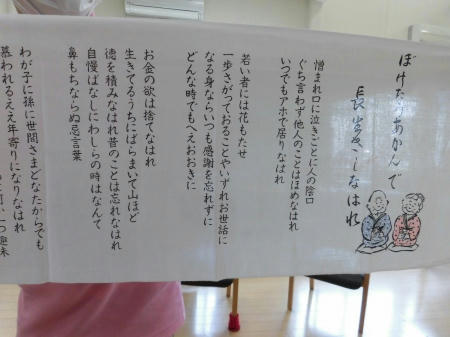 ぼけたらあかんで
長生きしなはれ
憎まれ口に泣きごとに人の陰口
ぐち言わず他人のことはほめなはれ
いつでもアホで居りなはれ
若い者には花もたせ
一歩さがっておることやいずれお世話に
なる身ならいつも感謝を忘れずに
どんな時でもへえおおきに
お金の欲は捨てなはれ
生きてるうちにばらまいて山ほど
徳を積みなはれ昔のことは忘れなはれ
自慢ばなしにわしらの時はなんて
鼻もちならぬ忌言葉
わが子に孫に世間さまどなたからでも
慕われるええ年寄りになりなはれ
一つ趣味